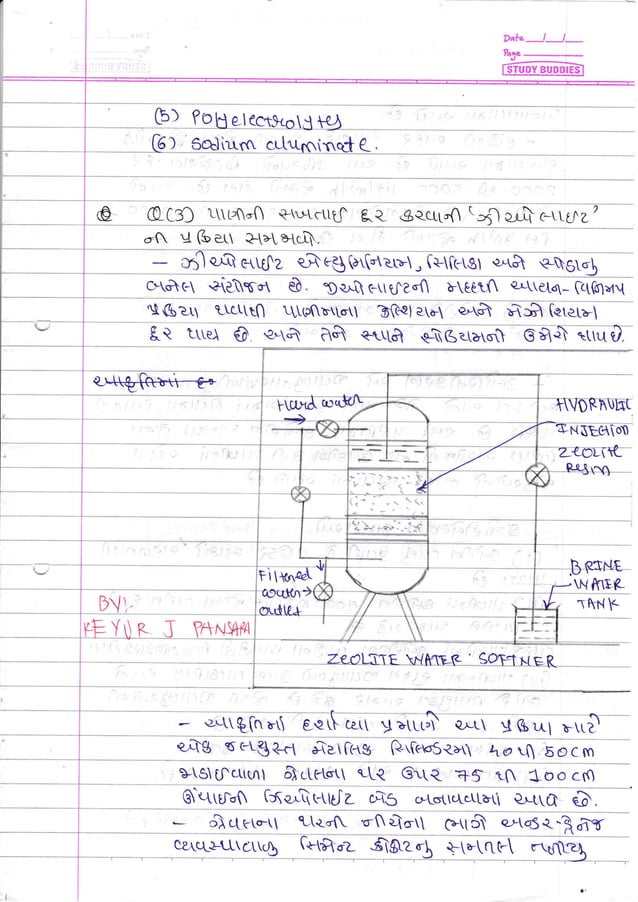 Date __/__/__
Page
STUDY BUDDIES
(5) Polyelectrolytes
(6) Sodium aluminate.
Q(3) પાણીની સખતાઈ દૂર કરવાની 'ઝીઓલાઈટ'
ની પ્રક્રિયા સમજાવો.
- ઝીઓલાઈટ એલ્યુમિનિયમ, સિલિકા અને સોડાનુ
બનેલ સંયોજન છે. ઝીઓલાઈટની મદદથી આયન-વિનિમય
પ્રક્રિયા થવાથી પાણીમાના કેલ્શિયમ અને મેગ્નેશિયમ
દૂર થાય છે. અને તેને સ્થાને સોડિયમની ઉમેરો થાય છે.
આકૃતિમાં
Hard water
HYDRAULIC
INJECTION
ZEOLITE
RESIN
Filtered
water
outlet
BRINE
WATER
TANK
BY:
KEYUR J PANSARA
ZEOLITE WATER SOFTNER
- આકૃતિમાં દર્શાવ્યા પ્રમાણે આ પ્રક્રિયા માટે
એક જલચુસ્ત મેટાલિક સિલિન્ડરમાં 40 થી 50 cm
જાડાઈવાળા ગ્રેવલના થર ઉપર 75 થી 100 cm
ઊંચાઈની ઝિઓલાઈટ બેડ બનાવવામાં આવે છે.
- ગ્રેવલના થરની નીચેના ભાગે અન્ડર-ડ્રેનેજ
વ્યવસ્થાવાળુ સિમેન્ટ કોંક્રિટનુ સમતલ તળીયુ